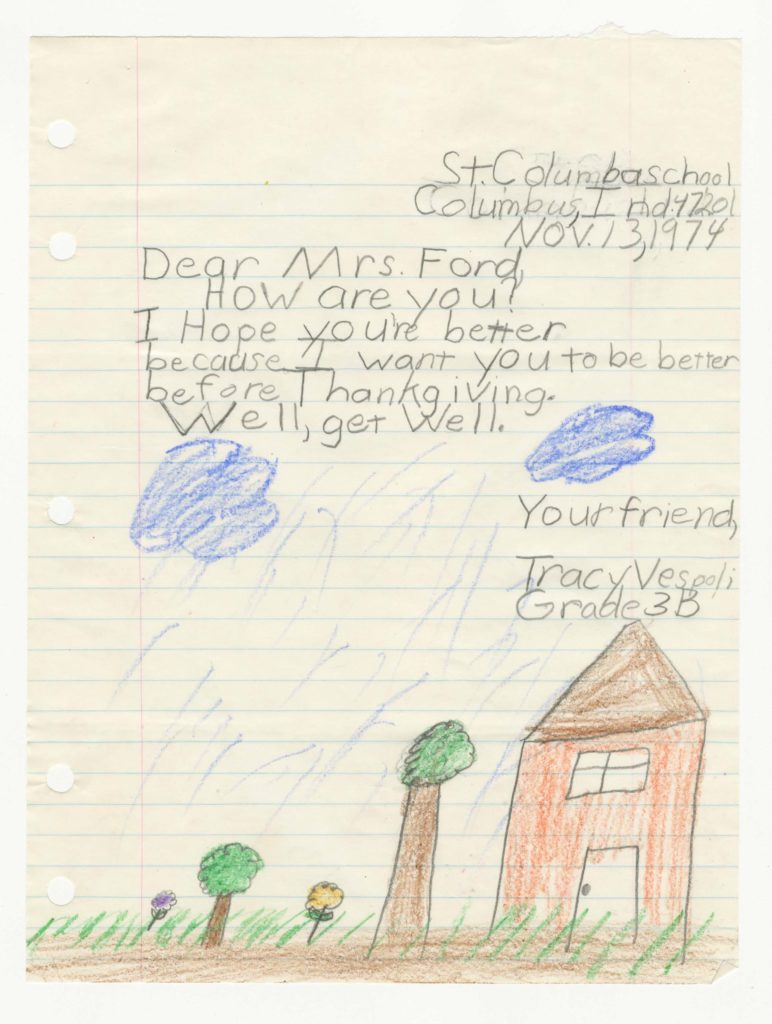 St. Columba school
Columbus, Ind. 47201
Nov. 13, 1974
Dear Mrs. Ford,
How are you?
I Hope you're better
because I want you to be better
before Thankgiving.
Well, get Well.
Your friend,
Tracy Vespoli
Grade 3B